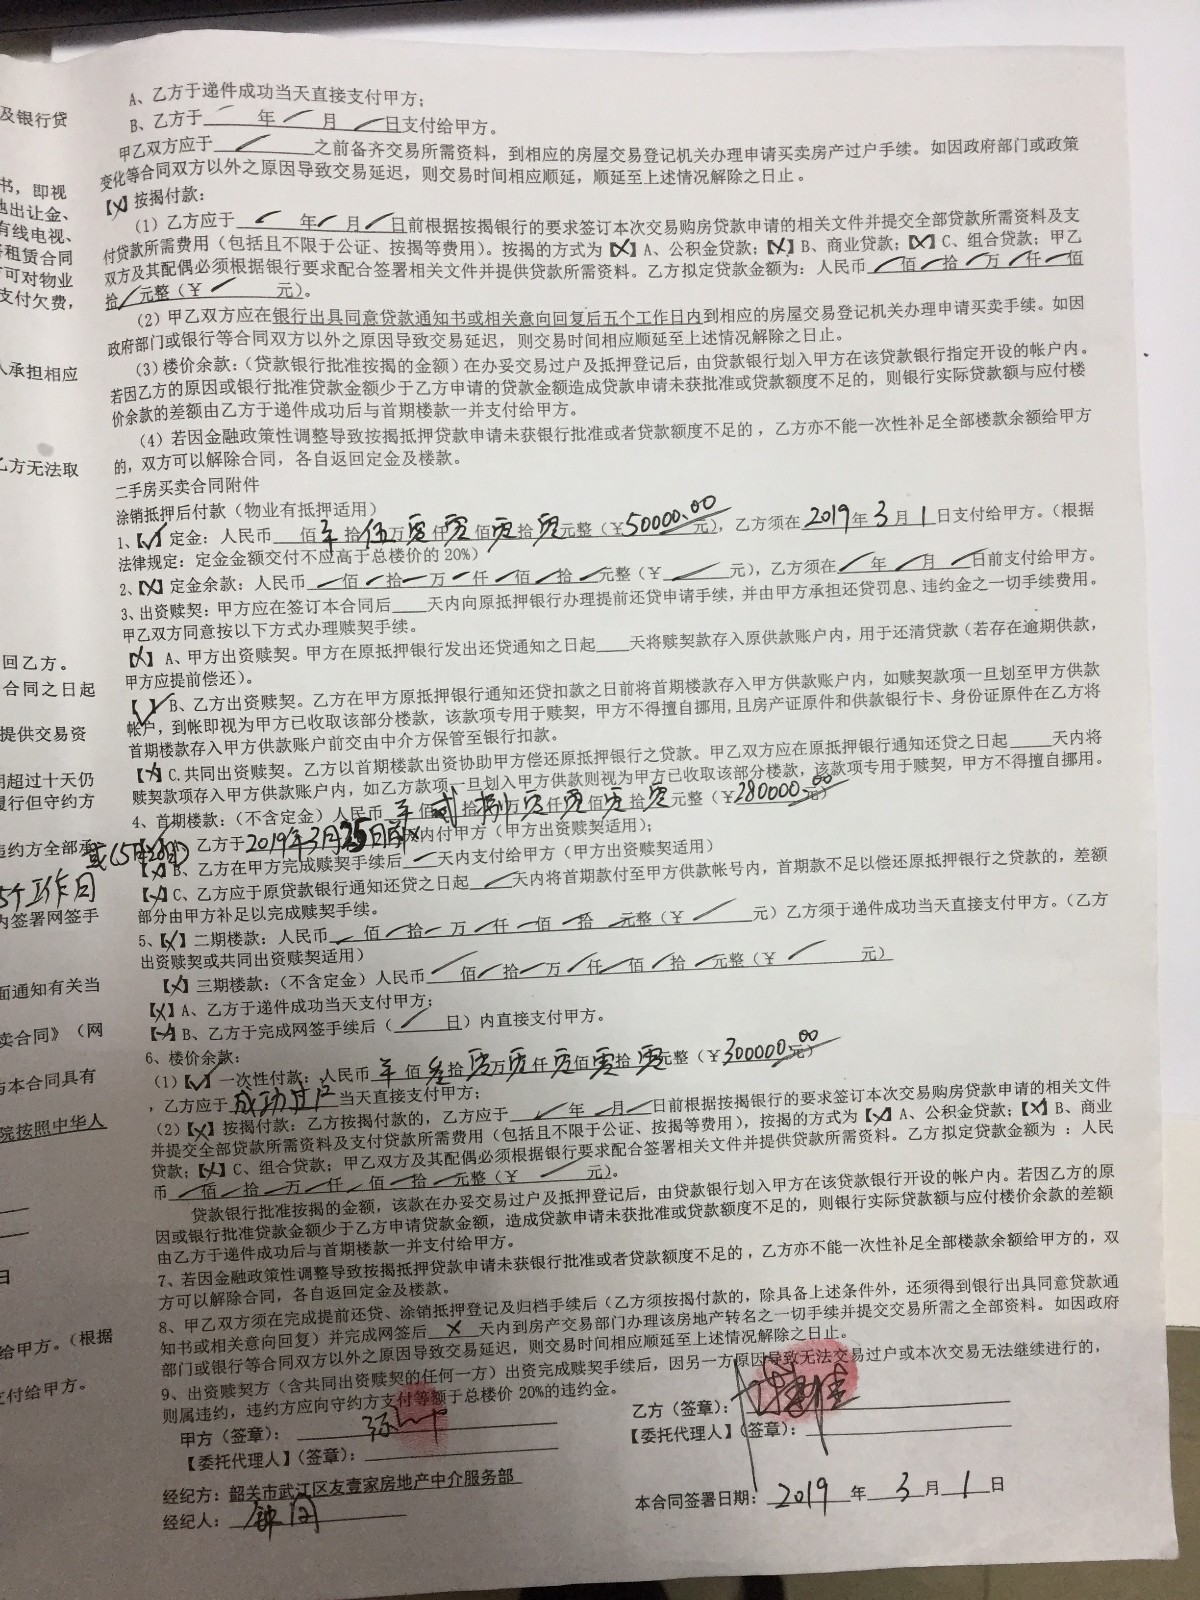 及银行贷
书，即视
地出让金、
有线电视、
租赁合同
可对物业
支付欠费，
人承担相应
乙方无法取
回乙方。
合同之日起
提供交易资
期超过十天仍
履行但守约方
违约方全部承
5个工作日
内签署网签手
面通知有关当
卖合同》（网
与本合同具有
院按照中华人
日
给甲方。（根据
支付给甲方。
A、乙方于递件成功当天直接支付甲方；
B、乙方于 年 月 日支付给甲方。
甲乙双方应于 之前备齐交易所需资料，到相应的房屋交易登记机关办理申请买卖房产过户手续。如因政府部门或政策
变化等合同双方以外之原因导致交易延迟，则交易时间相应顺延，顺延至上述情况解除之日止。
【X】按揭付款：
（1）乙方应于 年 月 日前根据按揭银行的要求签订本次交易购房贷款申请的相关文件并提交全部贷款所需资料及支
付贷款所需费用（包括且不限于公证、按揭等费用）。按揭的方式为【X】A、公积金贷款；【X】B、商业贷款；【X】C、组合贷款；甲乙
双方及其配偶必须根据银行要求配合签署相关文件并提供贷款所需资料。乙方拟定贷款金额为：人民币 佰 拾 万 仟 佰
拾 元整（￥ 元）。
（2）甲乙双方应在银行出具同意贷款通知书或相关意向回复后五个工作日内到相应的房屋交易登记机关办理申请买卖手续。如因
政府部门或银行等合同双方以外之原因导致交易延迟，则交易时间相应顺延至上述情况解除之日止。
（3）楼价余款：（贷款银行批准按揭的金额）在办妥交易过户及抵押登记后，由贷款银行划入甲方在该贷款银行指定开设的帐户内。
若因乙方的原因或银行批准贷款金额少于乙方申请的贷款金额造成贷款申请未获批准或贷款额度不足的，则银行实际贷款额与应付楼
价余款的差额由乙方于递件成功后与首期楼款一并支付给甲方。
（4）若因金融政策性调整导致按揭抵押贷款申请未获银行批准或者贷款额度不足的，乙方亦不能一次性补足全部楼款余额给甲方
的，双方可以解除合同，各自返回定金及楼款。
二手房买卖合同附件
涂销抵押后付款（物业有抵押适用）
1、【√】定金：人民币 佰 拾伍万零仟零佰零拾零元整（￥50000.00元），乙方须在2019年3月1日支付给甲方。（根据
法律规定：定金金额交付不应高于总楼价的20%）
2、【X】定金余款：人民币 佰 拾 万 仟 佰 拾 元整（￥ 元），乙方须在 年 月 日前支付给甲方。
3、出资赎契：甲方应在签订本合同后 天内向原抵押银行办理提前还贷申请手续，并由甲方承担还贷罚息、违约金之一切手续费用。
甲乙双方同意按以下方式办理赎契手续。
【X】A、甲方出资赎契。甲方在原抵押银行发出还贷通知之日起 天将赎契款存入原供款账户内，用于还清贷款（若存在逾期供款，
甲方应提前偿还）。
【√】B、乙方出资赎契。乙方在甲方原抵押银行通知还贷扣款之日前将首期楼款存入甲方供款账户内，如赎契款项一旦划至甲方供款
帐户，到帐即视为甲方已收取该部分楼款，该款项专用于赎契，甲方不得擅自挪用，且房产证原件和供款银行卡、身份证原件在乙方将
首期楼款存入甲方供款账户前交由中介方保管至银行扣款。
【X】C.共同出资赎契。乙方以首期楼款出资协助甲方偿还原抵押银行之贷款。甲乙双方应在原抵押银行通知还贷之日起 天内将
赎契款项存入甲方供款账户内，如乙方款项一旦划入甲方供款则视为甲方已收取该部分楼款，该款项专用于赎契，甲方不得擅自挪用。
4、首期楼款：（不含定金）人民币 佰贰拾捌万零仟零佰零拾零元整（￥280000.00元）
A、乙方于2019年3月25日前内付甲方（甲方出资赎契适用）；
【X】B、乙方在甲方完成赎契手续后 天内支付给甲方（甲方出资赎契适用）
【X】C、乙方应于原贷款银行通知还贷之日起 天内将首期款付至甲方供款帐号内，首期款不足以偿还原抵押银行之贷款的，差额
部分由甲方补足以完成赎契手续。
5、【X】二期楼款：人民币 佰 拾 万 仟 佰 拾 元整（￥ 元）乙方须于递件成功当天直接支付甲方。（乙方
出资赎契或共同出资赎契适用）
【X】三期楼款：（不含定金）人民币 佰 拾 万 仟 佰 拾 元整（￥ 元）
【X】A、乙方于递件成功当天支付甲方；
【X】B、乙方于完成网签手续后（ 日）内直接支付甲方。
6、楼价余款：
（1）【√】一次性付款：人民币 佰叁拾零万零仟零佰零拾零元整（￥300000.00元）
，乙方应于成功过户当天直接支付甲方；
（2）【X】按揭付款：乙方按揭付款的，乙方应于 年 月 日前根据按揭银行的要求签订本次交易购房贷款申请的相关文件
并提交全部贷款所需资料及支付贷款所需费用（包括且不限于公证、按揭等费用），按揭的方式为【X】A、公积金贷款；【X】B、商业
贷款；【X】C、组合贷款；甲乙双方及其配偶必须根据银行要求配合签署相关文件并提供贷款所需资料。乙方拟定贷款金额为：人民
币 佰 拾 万 仟 佰 拾 元整（￥ 元）。
贷款银行批准按揭的金额，该款在办妥交易过户及抵押登记后，由贷款银行划入甲方在该贷款银行开设的帐户内。若因乙方的原
因或银行批准贷款金额少于乙方申请贷款金额，造成贷款申请未获批准或贷款额度不足的，则银行实际贷款额与应付楼价余款的差额
由乙方于递件成功后与首期楼款一并支付给甲方。
7、若因金融政策性调整导致按揭抵押贷款申请未获银行批准或者贷款额度不足的，乙方亦不能一次性补足全部楼款余额给甲方的，双
方可以解除合同，各自返回定金及楼款。
8、甲乙双方须在完成提前还贷、涂销抵押登记及归档手续后（乙方须按揭付款的，除具备上述条件外，还须得到银行出具同意贷款通
知书或相关意向回复）并完成网签后 X 天内到房产交易部门办理该房地产转名之一切手续并提交交易所需之全部资料。如因政府
部门或银行等合同双方以外之原因导致交易延迟，则交易时间相应顺延至上述情况解除之日止。
9、出资赎契方（含共同出资赎契的任何一方）出资完成赎契手续后，因另一方原因导致无法交易过户或本次交易无法继续进行的，
则属违约，违约方应向守约方支付等额于总楼价20%的违约金。
甲方（签章）：
乙方（签章）：
【委托代理人】（签章）：
【委托代理人】（签章）：
经纪方：韶关市武江区友壹家房地产中介服务部
经纪人：
本合同签署日期：2019年3月1日